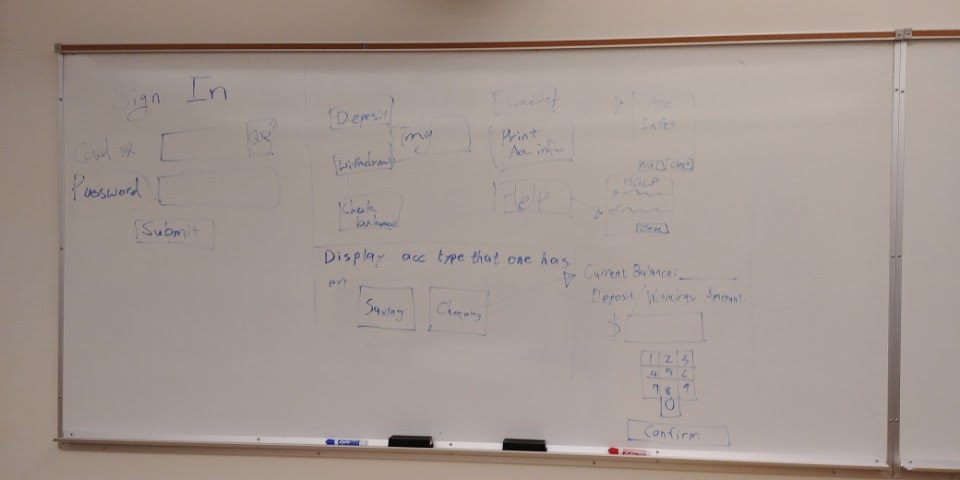 Sign In
Card #
QR
Password
Submit
Deposit
Withdraw
Check
balance
img
Transfer
Print
Acc info
Help
Acc
Info
Print
Close
Close
Display acc type that one has
Saving
Checking
Current Balance:
Deposit/Withdraw Amount
$
1 2 3
4 5 6
7 8 9
0
Confirm